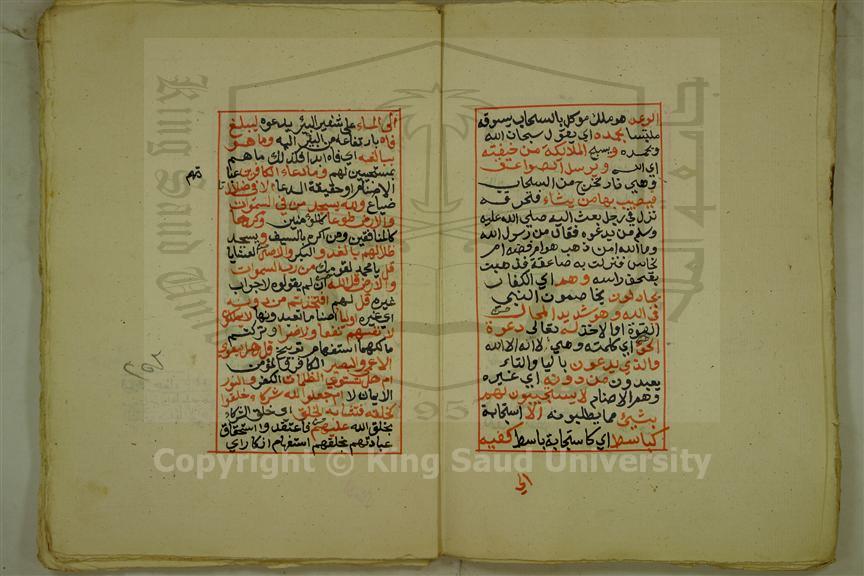 الرعد هو ملك موكل بالسحاب يسوقه
ملتبسا بحمده اي يقول سبحان الله
وبحمده ويسبح الملائكة من خيفته
اي الله ويرسل الصواعق
وهي نار تخرج من السحاب
فيصيب بها من يشاء فتحرقه
نزل في رجل بعث اليه صلي الله عليه
وسلم من يدعوه فقال من رسول الله
وما الله امن ذهب هو ام من فضة ام
نحاس فنزلت به صاعقة فذهبت
بقحف راسه وهم اي الكفار
يجادلون يخاصمون النبي
في الله وهو شديد المحال
القوة او الاخذ له تعالي دعوة
الحق اي كلمته وهي لا اله الا الله
والذي يدعون باليا والتاء
يعبدون من دونه اي غيره
وهم الاصنام لا يستجيبون لهم
بشيئ مما يطلبونه الا استجابة
كباسط اي كاستجابة باسط كفيه
الى
الى الماء على شفير البئر يدعوه ليبلغ
فاه بارتفاعه من البئر اليه وما هو
ببالغه اي فاه ابدا فكذلك ما هم
بمستجيبين لهم وما دعاء الكافرين عبادتهم
الاصنام او حقيقة الدعاء الا في ضلال
ضياع ولله يسجد من في السموات
والارض طوعا كالمؤمنين وكرها
كالمنافقين ومن اكره بالسيف ويسجد
ظلالهم بالغدو البكر والاصال العشايا
قل يا محمد لقومك من رب السموات
والارض قل الله ان لم يقولوه لا جواب
غيره قل لهم افاتخذتم من دونه
اي غيره اوليا اصناما تعبدونها لا يملكون
لانفسهم نفعا ولا ضرا وتركتم
مالكهما استفهام توبيخ قل هل يستوي
الاعمي والبصير الكافر والمؤمن
ام هل تستوي الظلمات الكفر والنور
الايمان لا ام جعلوا لله شركاء خلقوا
كخلقه فتشابه الخلق اي خلق الشركاء
بخلق الله عليهم فاعتقدوا استحقاق
عبادتهم بخلقهم استفهام انكار اي
King Saud University
جامعة الملك سعود
1957
Copyright © King Saud University